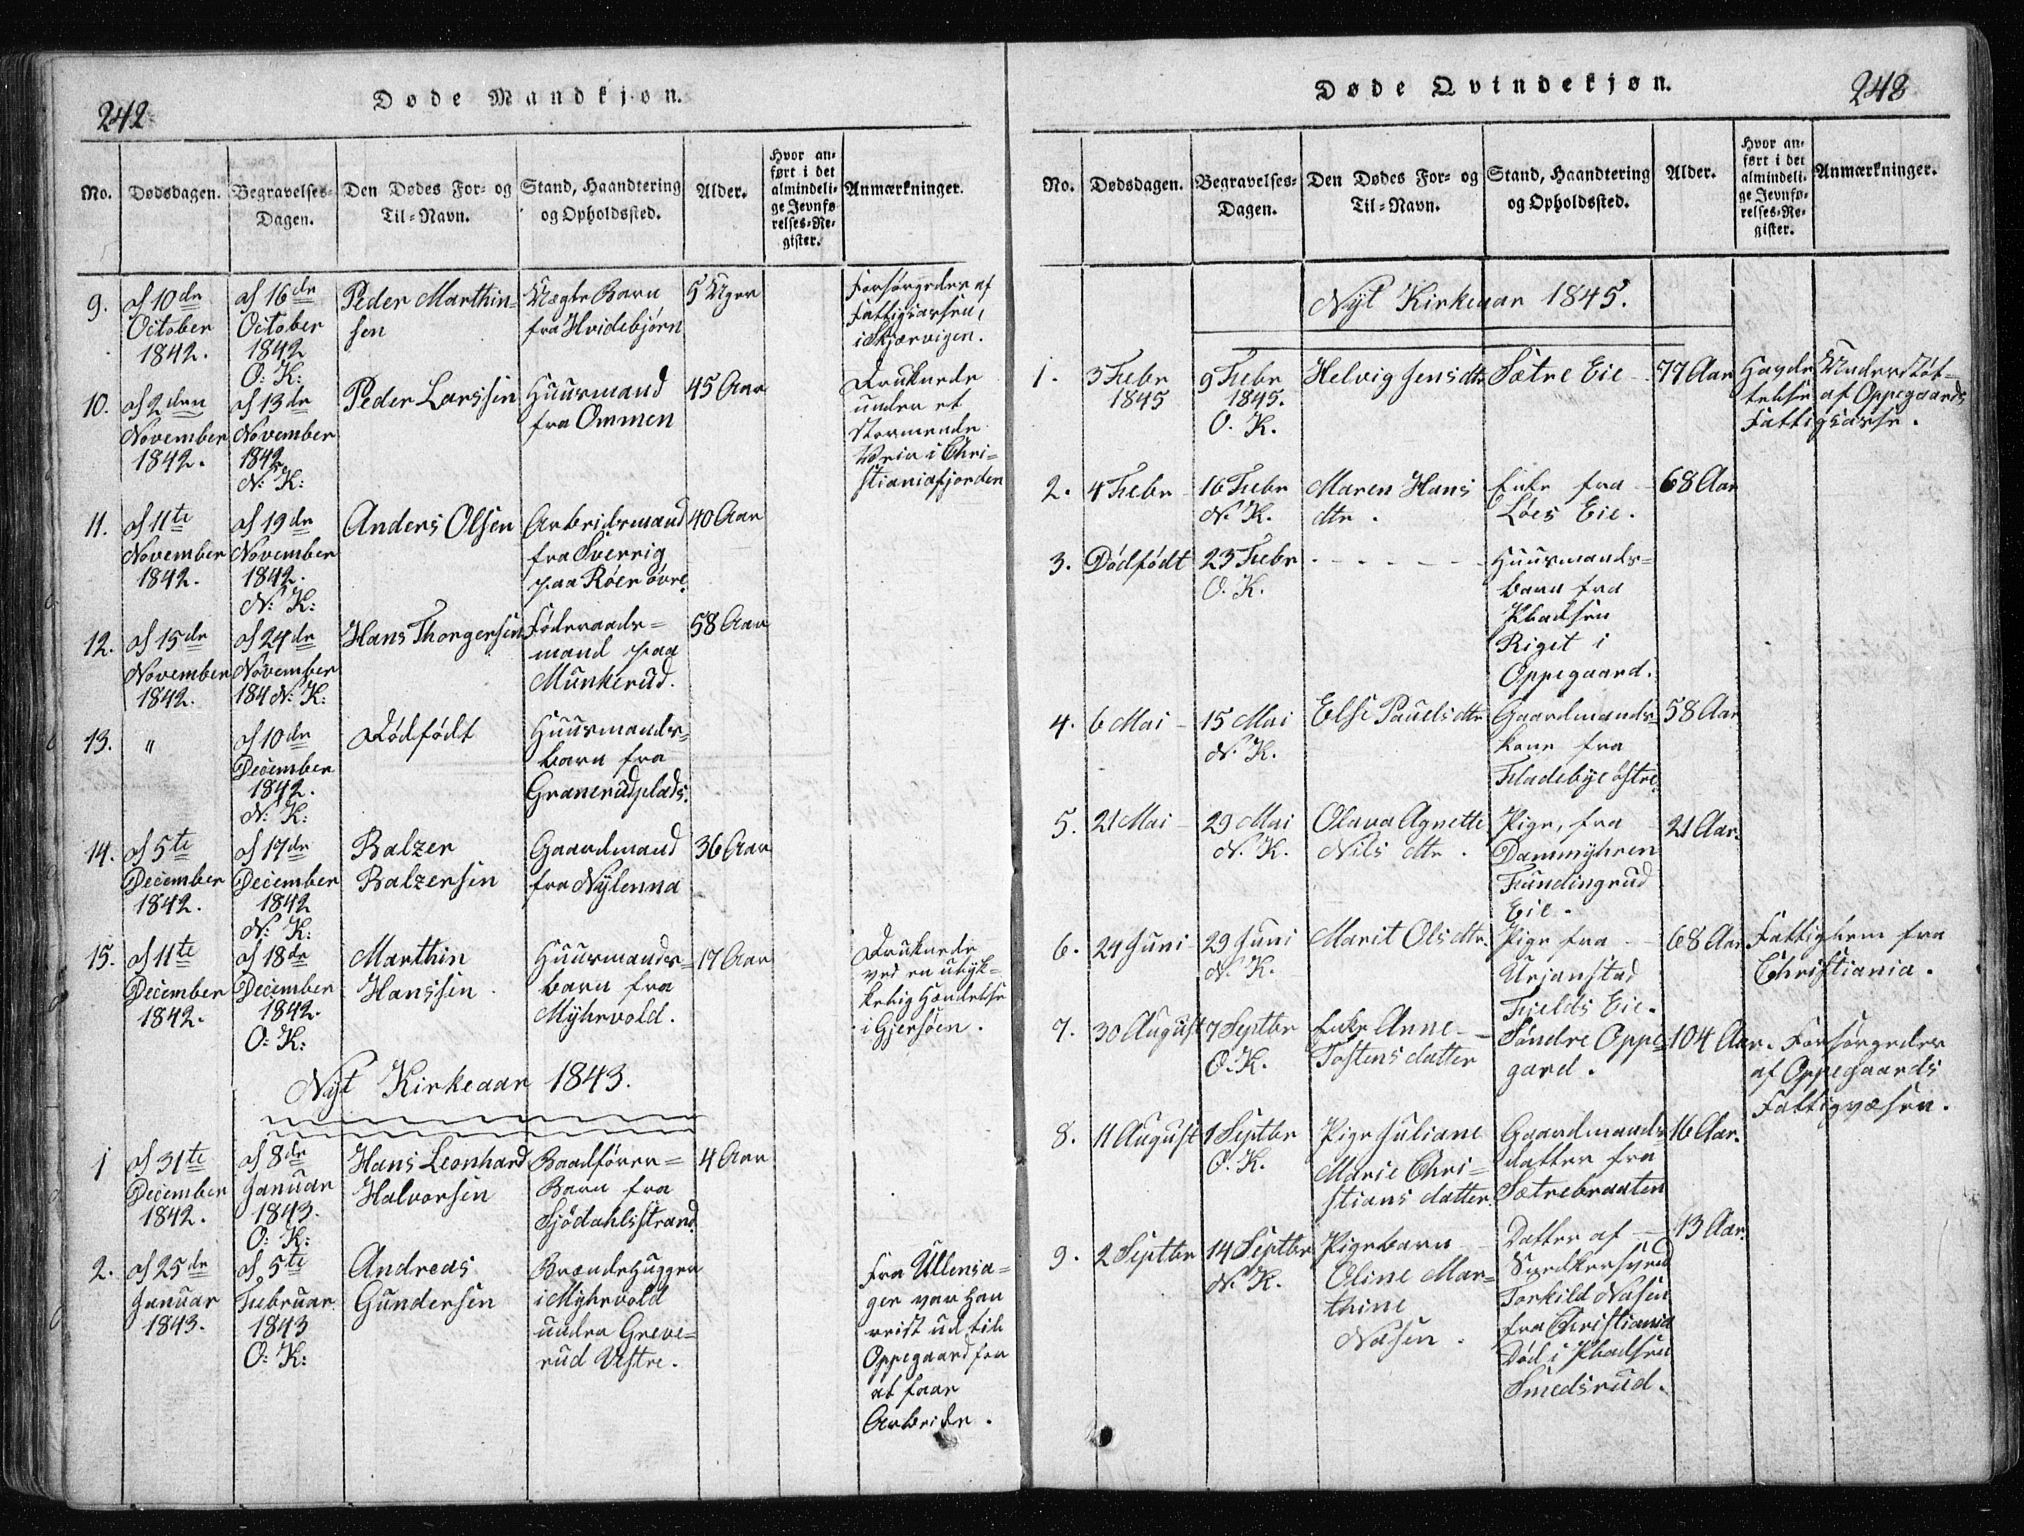 242
Døde Mandkjøn.
No. Dødsdagen. Begravelses-Dagen. Den Dødes For- og Til-Navn. Stand, Haandtering og Opholdssted. Alder. Hvor anført i det almindelige Jevnførelses-Register. Anmærkninger.
9. af 10de October 1842. af 16de October 1842 O: K: Peder Marthinsen Uægte Barn fra Hvidebjørn 5 Uger Forsørgedes af Fattigcassen, i Skjærvigen.
10. af 2den November 1842. af 13de November 1842. N: K: Peder Larssen Huusmand fra Ommen 45 Aar Druknede under et stormende Veir i Christianiafjorden
11. af 11te November 1842. af 19de November 1842. N: K: Anders Olsen Arbeidsmand fra Sverrig paa Røer øvre. 40 Aar
12. af 15de November 1842. af 24de November 184 N: K: Hans Thorgersen Føderaadsmand paa Munkerud. 58 Aar
13. " af 10de December 1842. N: K: Dødfødt Huusmandsbarn fra Granerudplads.
14. af 5te December 1842. af 17de December 1842 N: K: Balzer Balzersen Gaardmand fra Nylenna 36 Aar
15. af 11te December 1842. af 18de December 1842. O: K: Marthin Hanssen Huusmandsbarn fra Myhrvold. 17 Aar Druknede ved en ulykkelig Hændelse i Gjersøen.
Nyt Kirkeaar 1843.
1 af 31te December 1842. af 8de Januar 1843. O: K: Hans Leonhard Halvorsen Baadførerbarn fra Sjödahlsstrand. 4 Aar
2. af 25de Januar 1843. af 5te Februar 1843 O: K: Andreas Gundersen Brændehugger i Myhrvold under Greverud Vestre. Fra Ullensager var han reist ud til Oppegaard for at faae Arbeide.
248
Døde Qvindekjøn.
No. Dødsdagen. Begravelses-Dagen. Den Dødes For- og Til-Navn. Stand, Haandtering og Opholdssted. Alder. Hvor anført i det almindelige Jevnførelses-Register. Anmærkninger.
Nyt Kirkeaar 1845.
1. 3 Febr 1845 9 Febr 1845. O. K. Helvig Jensdtr Sætre Eie 77 Aar Havde Understøttelse af Oppegaards Fattigcasse.
2. 4 Febr 16 Febr N. K. Maren Hansdtr. Enke fra Löes Eie. 68 Aar
3. Dødfødt 23 Febr O. K. - - - - - - Huusmandsbarn fra Pladsen Riget i Oppegaard.
4. 6 Mai 15 Mai N. K. Else Paulsdtr Gaardmandskone fra Fladebye østre. 58 Aar
5. 21 Mai 29 Mai N. K. Olava Agnette Nilsdtr. Pige, fra Dammyhren Fundingrud Eie. 21 Aar.
6. 24 Juni 29 Juni N. K. Marit Olsdtr. Pige fra Urjanstad Fjelds Eie. 68 Aar Fattiglem fra Christiania.
7. 30 August 7 Septbr O. K. Enke Anne Tostensdatter Söndre Oppegard. 104 Aar. Forsørgedes af Oppegaards Fattigvæsen.
8. 11 August 1 Septbr O. K. Pige Juliane Marie Christiansdatter Gaardmandsdatter fra Sætrebraaten 16 Aar.
9. 2 Septbr 14 Septbr N. K. Pigebarn Oline Marthine Nasen. Datter af Snedkersvend Torkild Nasen fra Christiania Død i Pladsen Smedsrud. 13 Aar.